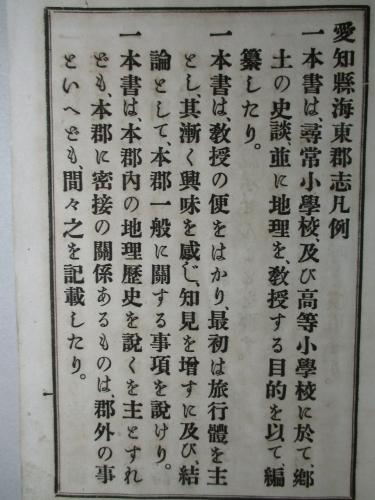 愛知縣海東郡志凡例
一本書は、尋常小學校、及び高等小學校に於て鄕
土の史談、並に地理を、敎授する目的を以て、編
纂したり。
一本書は、敎授の便をはかり、最初は旅行體を主
とし、其漸く興味を感じ、知見を增すに及び、結
論として、本郡一般に關する事項を說けり。
一本書は、本郡內の地理歷史を說くを主とすれ
ども、本郡に密接の關係あるものは、郡外の事
といへども、間々之を記載したり。